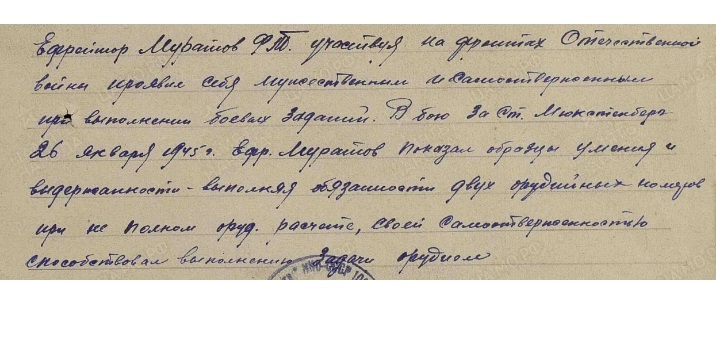 Ефрейтор Муратов Ф.Т. участвуя на фронтах Отечественной
войны проявил себя мужественным и самоотверженным
при выполнении боевых заданий. В бою за ст. Мюкстенберг
26 января 1945 г. Ефр. Муратов показал образцы умения и
выдержанности - выполняя обязанности двух орудийных номеров
при не полном оруд. расчете, своей самоотверженностью
способствовал выполнению задачи орудием
НКО СССР